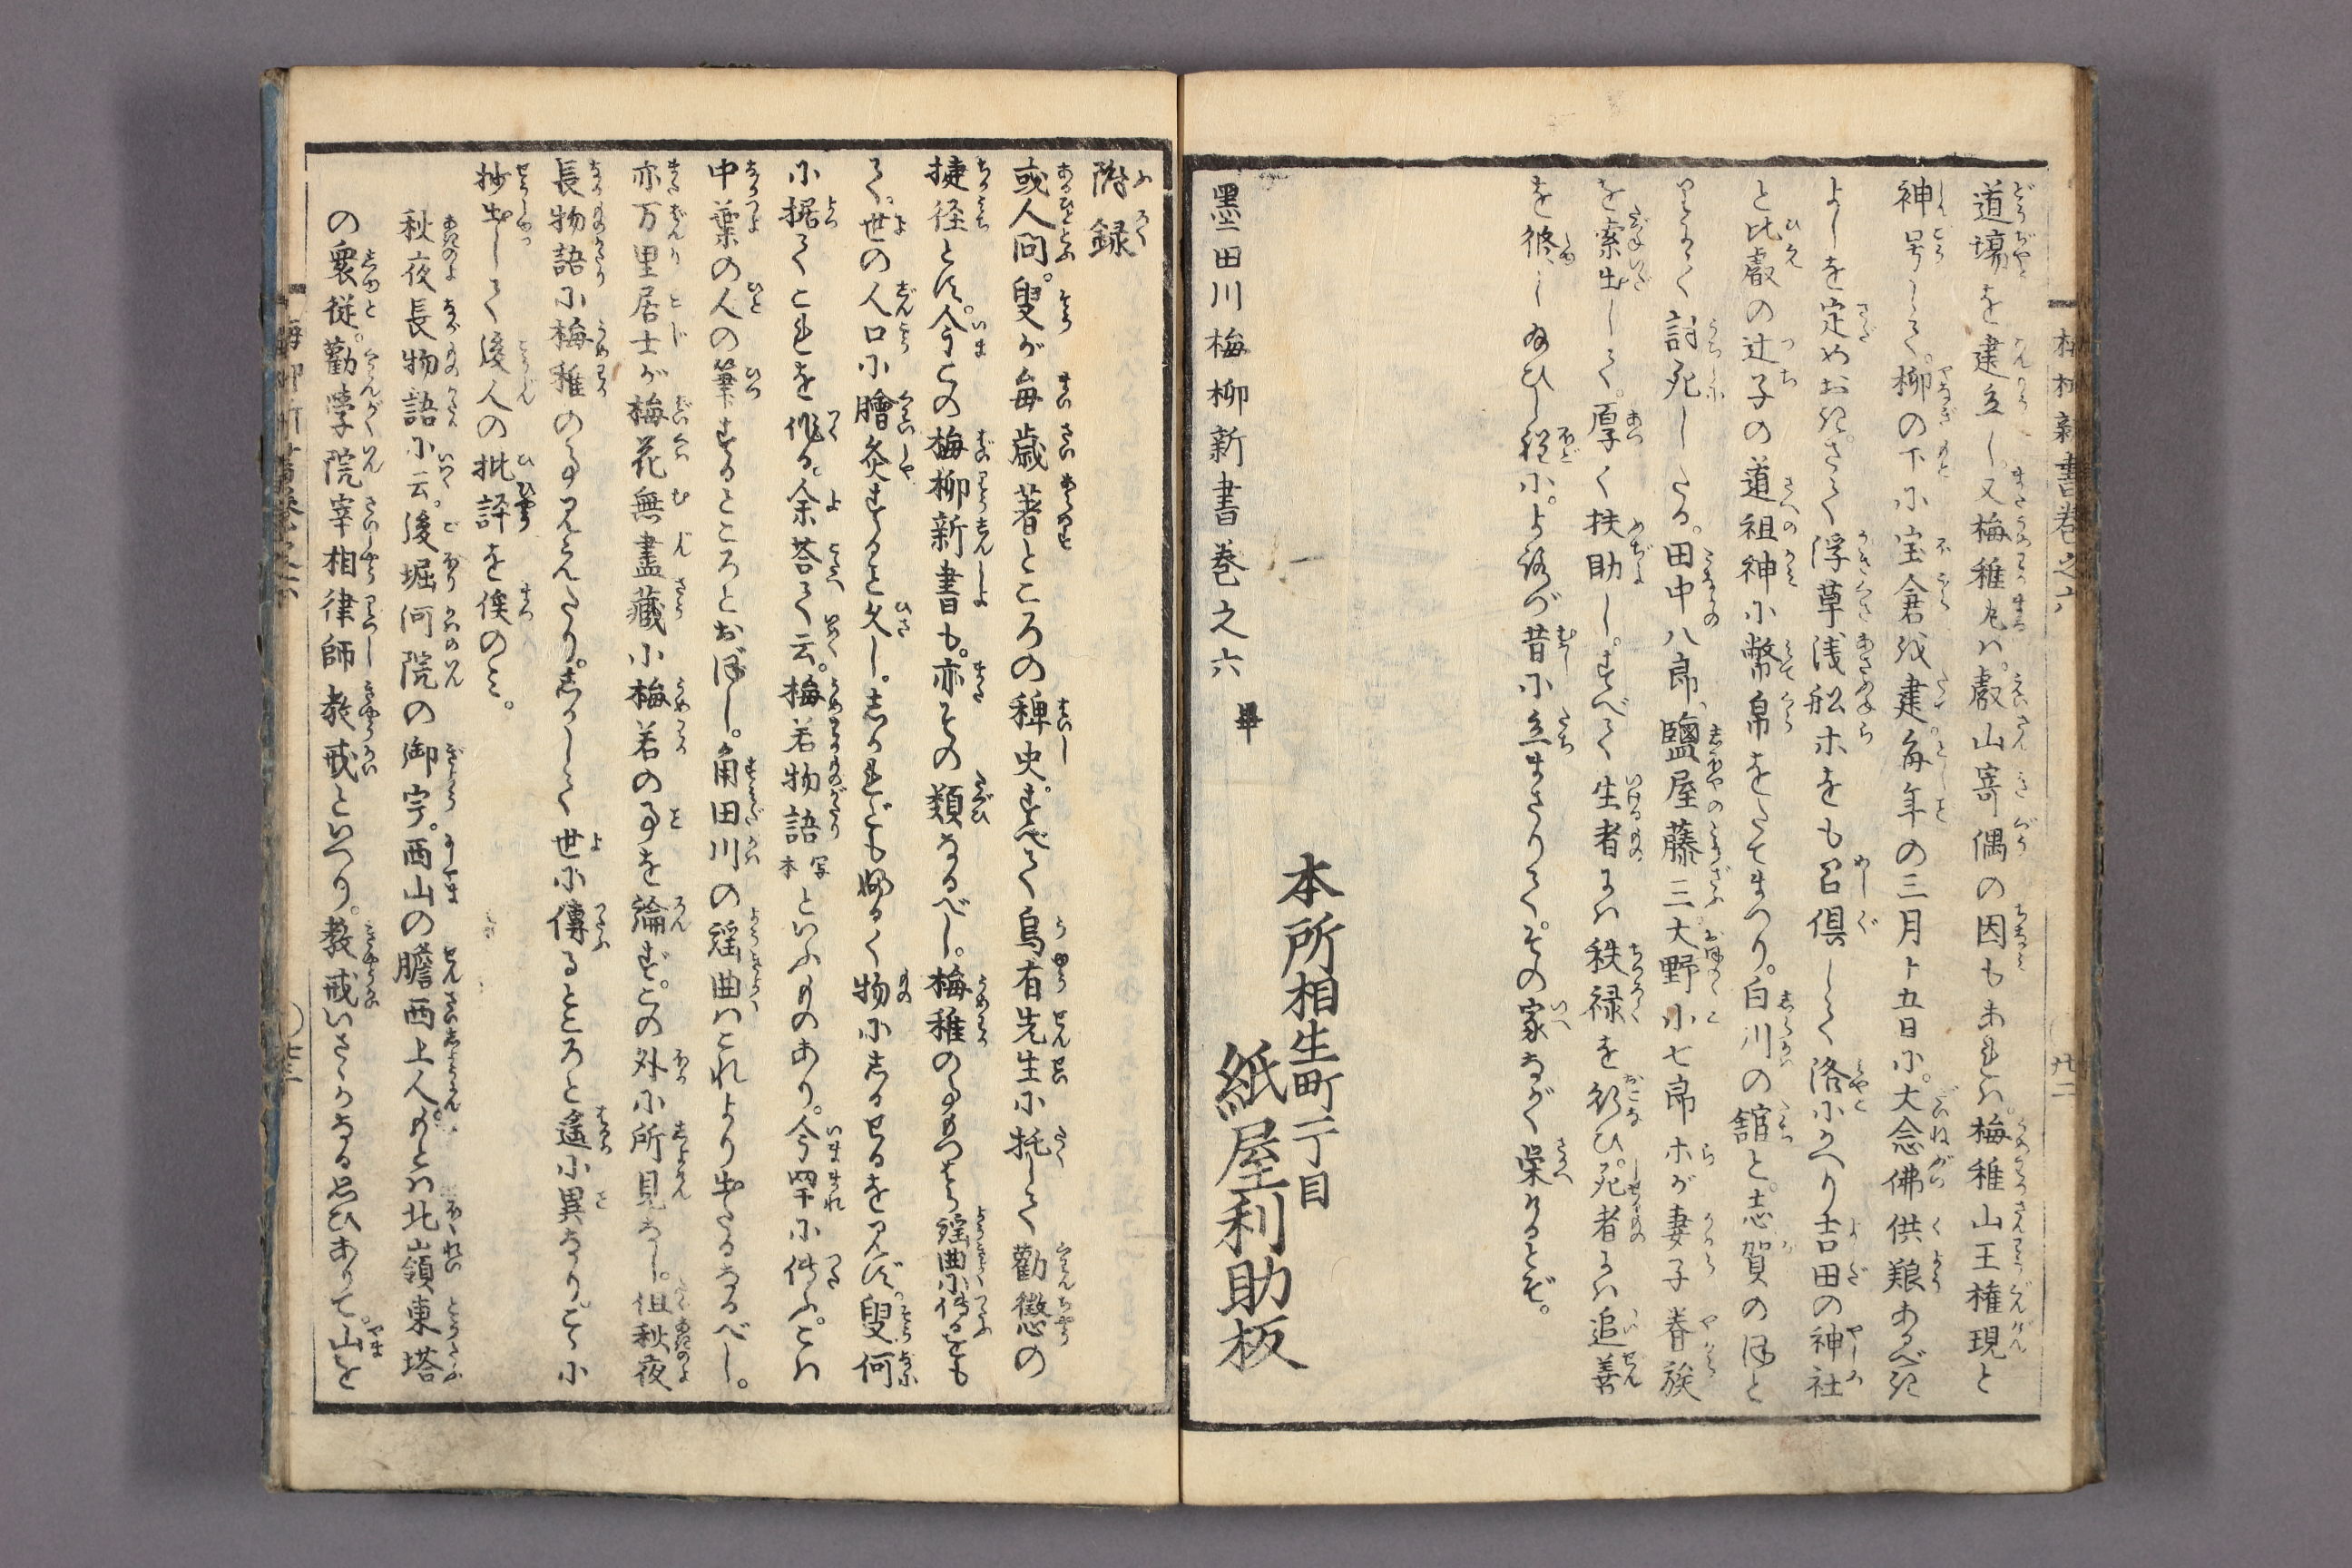 道場を建立し。又梅稚丸は。叡山寄偶の因もあれは。梅稚山王権現と
神号して。柳の下に宝倉を建。毎年の三月十五日に。大念佛供粮あるべき
よしを定めおき。さて浮草浅舩ホをも召倶して洛にかへり吉田の神社
と比叡の辻子の道祖神に幣帛をたてまつり。白川の舘と。志賀のほと
りにて討死したる。田中八郎、鹽屋藤三、大野小七郎ホが妻子眷族
を索出して。厚く扶助し。すべて生者には秩禄を行ひ。死者には追善
を修し給ひし程に。よろづ昔に立まさりて。その家ながく栄けるとぞ。
墨田川梅柳新書巻之六 畢
本所相生町一丁目
紙屋利助板
附録
或人問。叟が毎歳著ところの稗史。すべて烏有先生に托して勸懲の
捷径とす。今この梅柳新書も。亦その類なるべし。梅稚の事もつはら謡曲に傳るをも
て。世の人口に膾炙すること久し。しかれども好く物にしるせるを見ず。叟何
に据てこれを作る。余荅て云。梅若物語写本といふものあり。今罕に傳ふ。こは
中葉の人の筆するところとおぼし。角田川の謡曲はこれより出たるなるべし。
亦万里居士が梅花無盡藏に梅若の事を論ず。この外に所見なし。但秋夜
長物語に梅稚の事見えたり。しかして世に傳るところと遙に異なり。こゝに
抄出して後人の批評を俟のみ。
秋夜長物語に云。後堀河院の御宇。西山の贍西上人。もとは北嶺東塔
の衆徒。勸學院宰相律師教戒といへり。教戒いさゝかなる思ひありて。山を